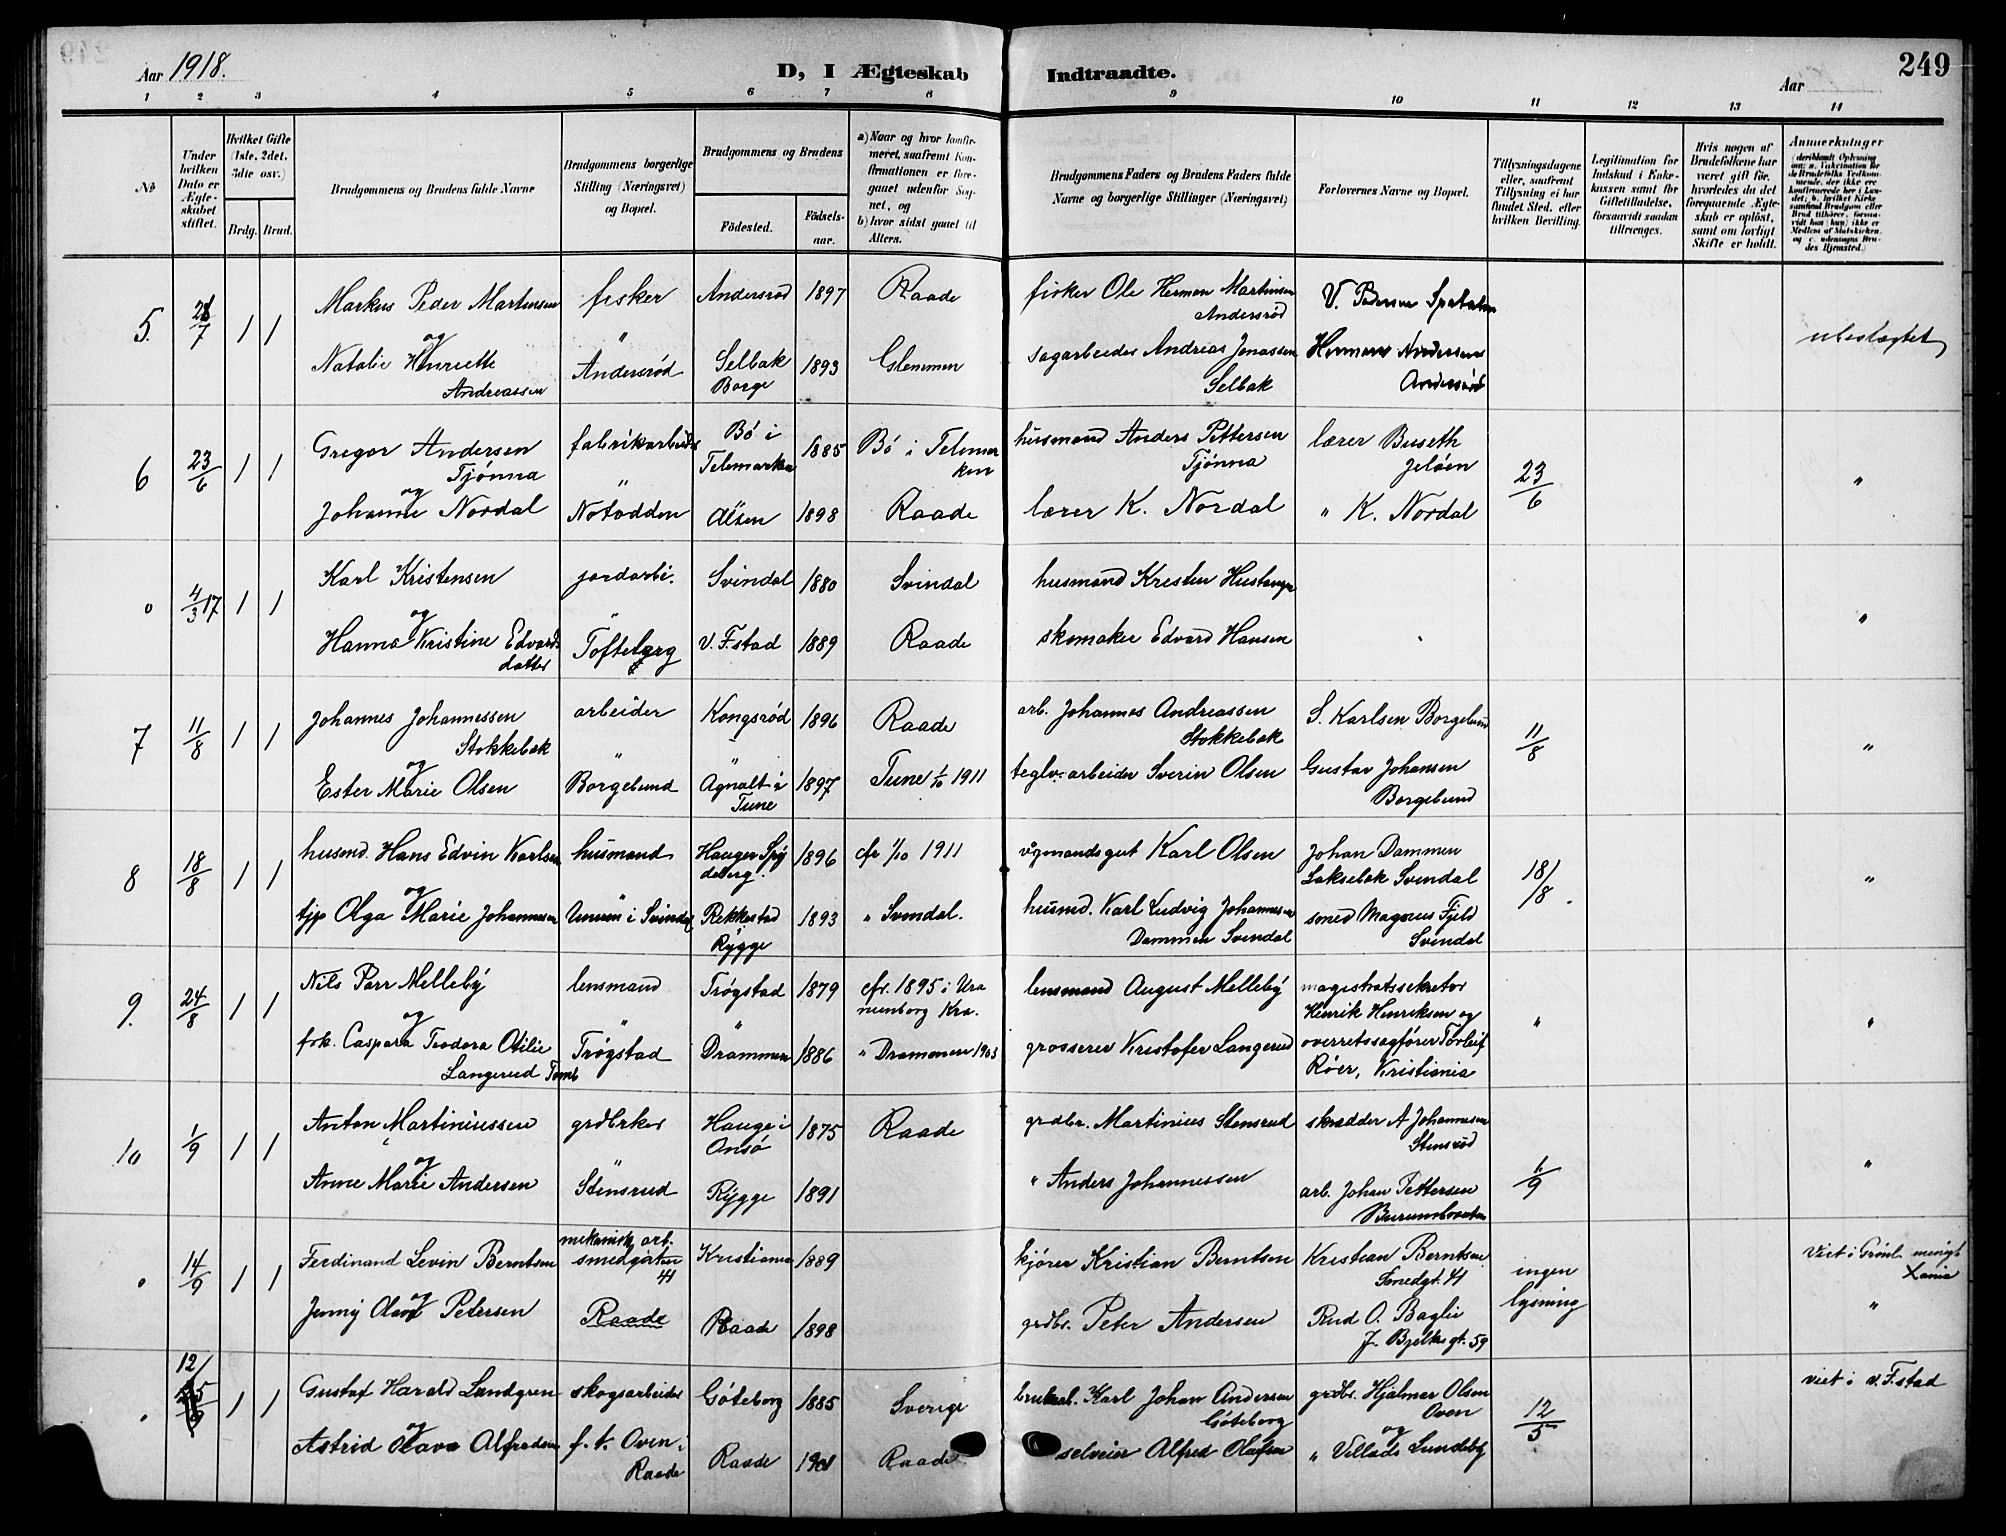 Aar 1918.
D, I Ægteskab Indtraadte.
249
Aar
1 2 3 4 5 6 7 8 9 10 11 12 13 14
No
Under hvilken Dato er Ægteskabet stiftet.
Hvilket Gifte (1ste, 2det, 3die osv.)
Brdg. Brud.
Brudgommens og Brudens fulde Navne
Brudgommens borgerlige Stilling (Næringsvei) og Bopæl.
Brudgommens og Brudens
Fødested.
Fødselsaar.
a) Naar og hvor konfirmeret, saafremt Konfirmationen er foregaaet udenfor Sognet, og
b) hvor sidst gaaet til Alters.
Brudgommens Faders og Brudens Faders fulde Navne og borgerlige Stillinger (Næringsvei)
Forlovernes Navne og Bopæl.
Tillysningsdagene eller, saafremt Tillysning ei har fundet Sted, efter hvilken Bevilling.
Legitimation for Indskud i Enkekassen samt for Giftetilladelse, forsaavidt saadan tiltrænges.
Hvis nogen af Brudefolkene har været gift før, hvorledes da det foregaaende Ægteskab er opløst, samt om lovligt Skifte er holdt.
Anmerkninger
5. 1 1 Markus Peder Martinsen fisker Andersrød 1897 Raade fisker Ole Herman Martinsen Andersrød V. Pedersen
og "
Natalie Henriette Andreassen Andersrød Selbak Borge 1893 Glemmen sagarbeider Andreas Jonassen Selbak Herman Andersen Andersrød ubeslægtet
6 23/6 1 1 Gregor Andersen Tjønna fabrikarbeider Bø i Telemarken 1885 Bø i Telemarken husmand Anders Pettersen Tjønna lærer Buseth Jeløen 23/6 "
og "
Johanne Nordal Notodden 1898 Raade lærer K. Nordal " K. Nordal
0 4/3 17 1 1 Karl Kristensen jordarbi. Svindal 1880 Svindal husmand Kristen "
og "
Hanna Kristine Edvardsdatter Tofteberg V. F.stad 1889 Raade skomaker Edvard Hansen
7 11/8 1 1 Johannes Johannessen Stokkebæk arbeider Kongsrød 1896 Raade arb. Johannes Andreassen Stokkebæk S. Karlsen Borgelund 11/8 "
og "
Ester Marie Olsen Borgelund Agnalt i Tune 1897 Tune 1/10 1911 teglv. arbeider Sverin Olsen Gustav Johansen Borgelund
8 18/8 1 1 husmd. Hans Edvin Karlsen husmand Hauger Spydeberg. 1896 cfr 1/10 1911 Karl Olsen Johan Dammen Laksebæk Svindal 18/8. "
og
tjp Olga Marie Johannesen i Svindal Rekkestad Rygge 1893 " Svindal. husmd. Karl Ludvig Johannesen Dammen Svindal smed Magnus Fjeld Svindal
9. 24/8 1 1 Nils Parr Melleby lensmand Trøgstad 1879 cfr. 1895 i Uranienborg Kra. lensmand August Melleby magistratssekretær Henrik Henriksen og " "
og "
frk. Caspara Teodora Otilie Langerud Tomb Trøgstad Drammen 1886 " Drammen 1903 grosserer Kristofer Langerud overretssagfører Torleif Røer, Kristiania
10 1/9 1 1 Anton Martiniussen grdbrker Hauge i Onsø 1875 Raade grdbr. Martinius Stensrud skrædder A Johannesen Stensrød 1/9 "
og "
Anne Marie Andersen Stensrud Rygge 1891 " Anders Johannessen arb. Johan Pettersen
0 14/9 1 1 Ferdinand Levin Berntsen mekanisk arb. smedgaten 41 Kristiania 1889 kjører Kristian Berntsen Kristian Berntsen Smedgt. 41 ingen lysning Viet i Grønl. menigh. Xania
og
Jenny Olava Petersen Raade Raade 1898 grdbr. Peter Andersen Rud O. Baglie J. Bjelkes gt. 59 "
0 12/5 1 1 Gustaf Harald Lundgren skogsarbeider Göteborg 1885 Sverige Karl Johan Andersen Göteborg grdbr. Hjalmar Olsen Oven 12/5 viet i v. F.stad
og og
Astrid Olava Alfredsen f. t. Oven i Raade Raade 1901 Raade selveier Alfred Olafsen " Villads Lundeby